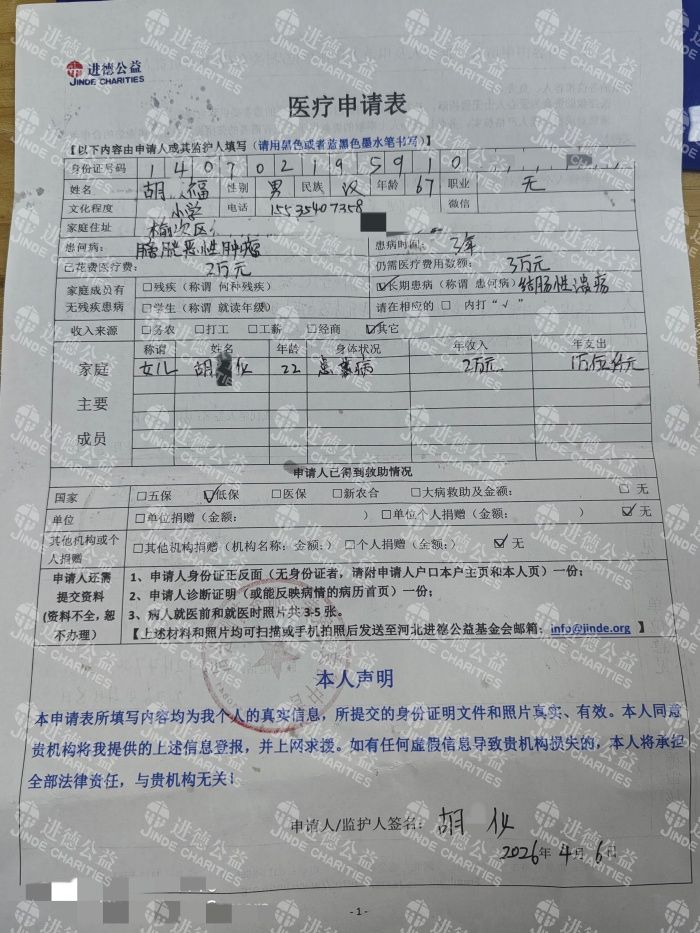 进德公益
JINDE CHARITIES
医疗申请表
【以下内容由申请人或其监护人填写（请用黑色或者蓝黑色墨水笔书写）】
身份证号码 1 4 0 7 0 2 1 9 5 9 1 0
姓名 胡 福 性别 男 民族 汉 年龄 67 职业 无
文化程度 小学 电话 15535407358 微信
家庭住址 榆次区
患何病： 膀胱恶性肿瘤 患病时间： 3年
已花费医疗费： 2万元 仍需医疗费用数额： 3万元
家庭成员有无残疾患病 □残疾（称谓 何种残疾） ☑长期患病（称谓 患何病）结肠性溃疡
□学生（称谓 就读年级） 请在相应的 □ 内打“√”
收入来源 □务农 □打工 □工薪 □经商 ☑其它
家庭主要成员 称谓 姓名 年龄 身体状况 年收入 年支出
女儿 胡 仪 22 患 病 2万元
申请人已得到救助情况
国家 □五保 ☑低保 □医保 □新农合 □大病救助及金额： □ 无
单位 □单位捐赠（金额： ） □单位个人捐赠（金额： ） ☑ 无
其他机构或个人捐赠 □其他机构捐赠（机构名称：金额：） □个人捐赠（全额：） ☑ 无
申请人还需提交资料（资料不全，恕不办理）
1、申请人身份证正反面（无身份证者，请附申请人户口本户主页和本人页）一份；
2、申请人诊断证明（或能反映病情的病历首页）一份；
3、病人就医前和就医时照片共 3-5 张。
【上述材料和照片均可扫描或手机拍照后发送至河北进德公益基金会邮箱：info@jinde.org 】
本人声明
本申请表所填写内容均为我个人的真实信息，所提交的身份证明文件和照片真实、有效。本人同意
贵机构将我提供的上述信息登报，并上网求援。如有任何虚假信息导致贵机构损失的，本人将承担
全部法律责任，与贵机构无关！
申请人/监护人签名： 胡 仪
2026年 4月 6日
- 1 -